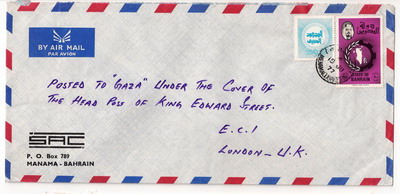 BY AIR MAIL
PAR AVION
STATE OF
BAHRAIN
POSTED TO "GAZA" UNDER THE COVER OF
THE HEAD POSS OF KING EDWARD STREET.
E.C.1
LONDON - U.K.
SAC
P. O. Box 789
MANAMA - BAHRAIN